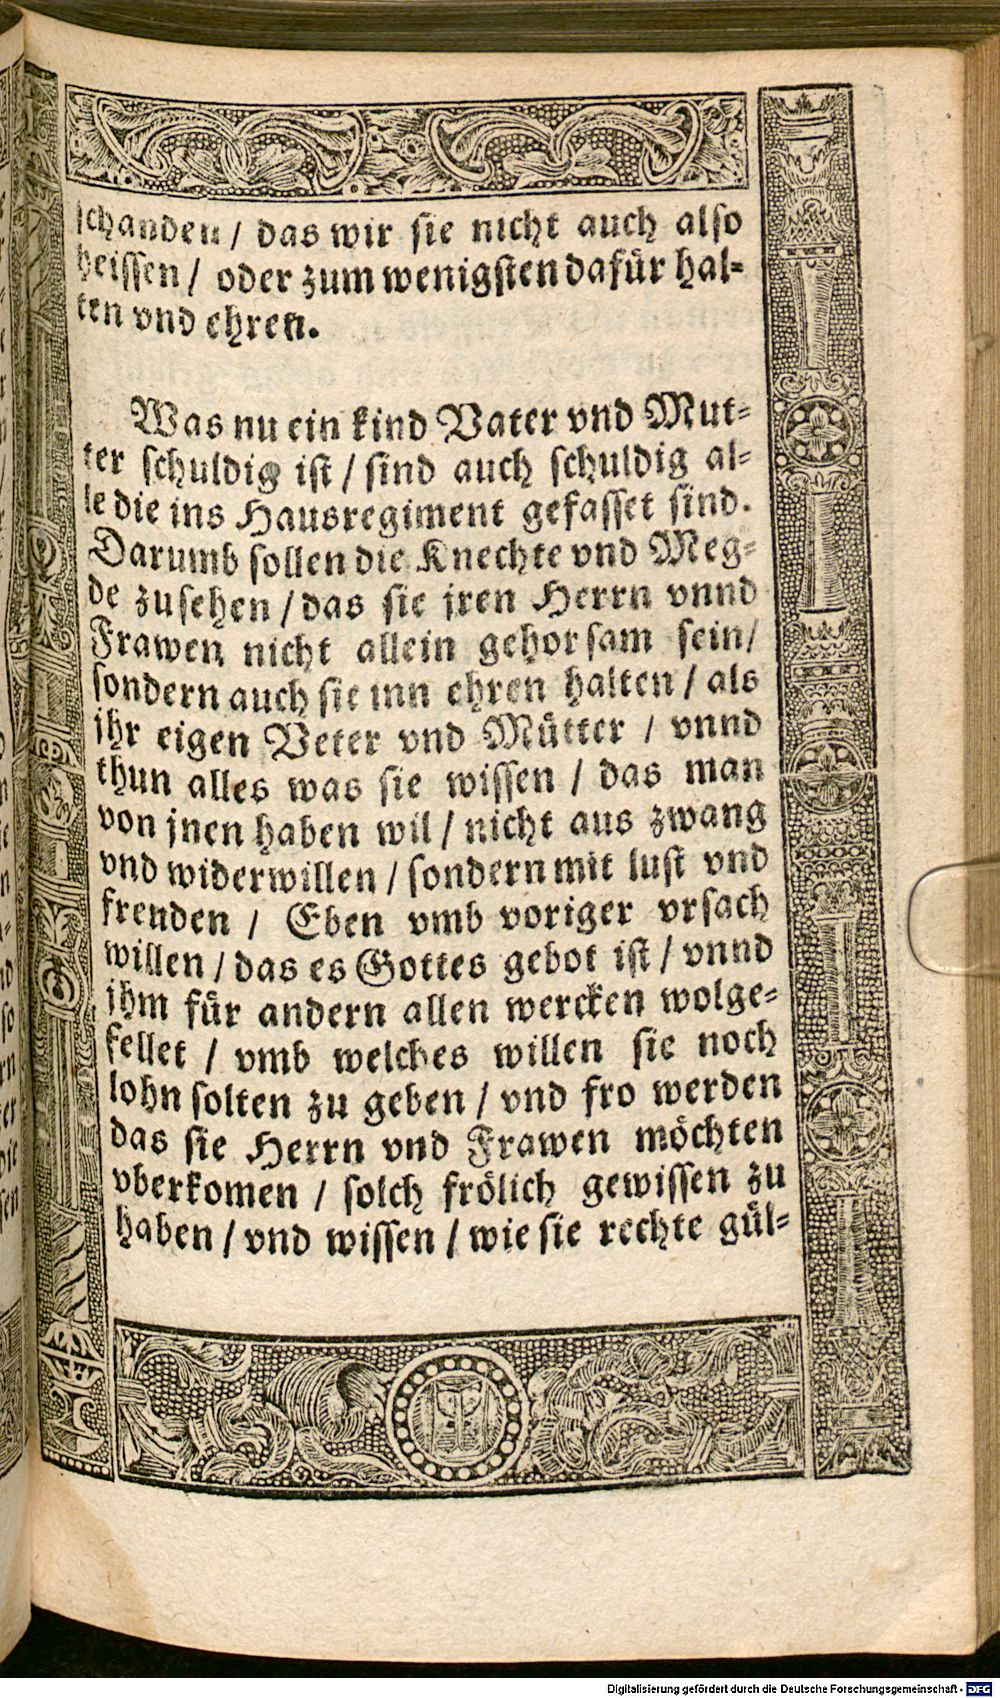 schanden / das wir sie nicht auch also
heissen / oder zum wenigsten dafür hal-
ten vnd ehren.
Was nu ein kind Vater vnd Mut-
ter schuldig ist / sind auch schuldig al-
le die ins Hausregiment gefasset sind.
Darumb sollen die Knechte vnd Meg-
de zusehen / das sie jren Herrn vnnd
Frawen nicht allein gehorsam sein /
sondern auch sie inn ehren halten / als
jhr eigen Veter vnd Mütter / vnnd
thun alles was sie wissen / das man
von jnen haben wil / nicht aus zwang
vnd widerwillen / sondern mit lust vnd
freuden / Eben vmb voriger vrsach
willen / das es Gottes gebot ist / vnnd
jhm für andern allen wercken wolge-
fellet / vmb welches willen sie noch
lohn solten zu geben / vnd fro werden
das sie Herrn vnd Frawen möchten
vberkomen / solch frölich gewissen zu
haben / vnd wissen / wie sie rechte gül-
Digitalisierung gefördert durch die Deutsche Forschungsgemeinschaft - DFG